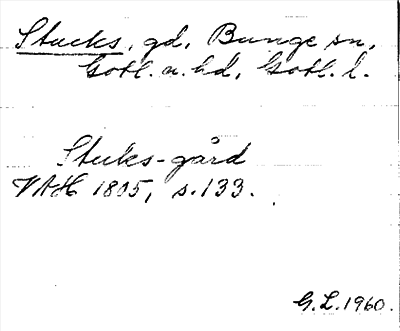 Stucks, gd, Bunge sn,
Gotl. n. hd, Gotl. l.
Stuks-gård
VAH 1805, s. 133.
G. L. 1960.